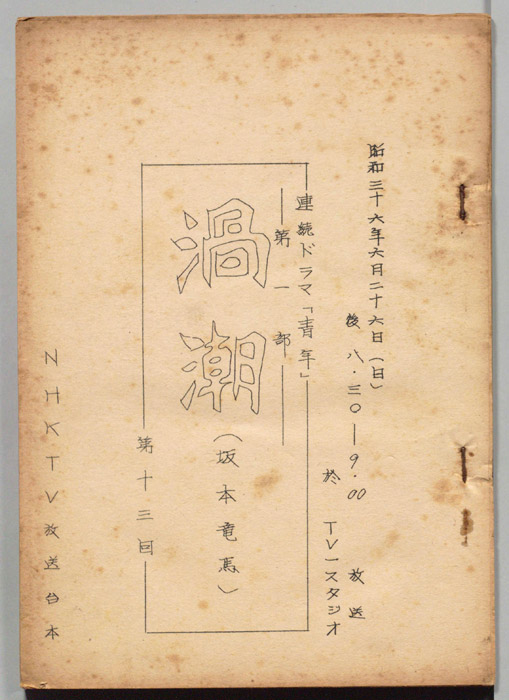 昭和三十六年六月二十六日（日）
後 八・三〇―9.00 放送
於 TV一スタジオ
連続ドラマ「青年」
第一部
渦潮
（坂本竜馬）
第十三回
NHKTV放送台本